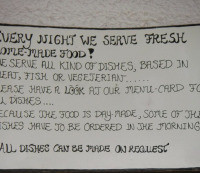 EVERY NIGHT WE SERVE FRESH
HOME-MADE FOOD!
WE SERVE ALL KIND OF DISHES, BASED IN
MEAT, FISH OR VEGETERIAN......
PLEASE HAVE A LOOK AT OUR MENU-CARD FOR
ALL DISHES....
BECAUSE THE FOOD IS DAY-MADE, SOME OF THE
DISHES HAVE TO BE ORDERED IN THE MORNING
ALL DISHES CAN BE MADE ON REQUEST